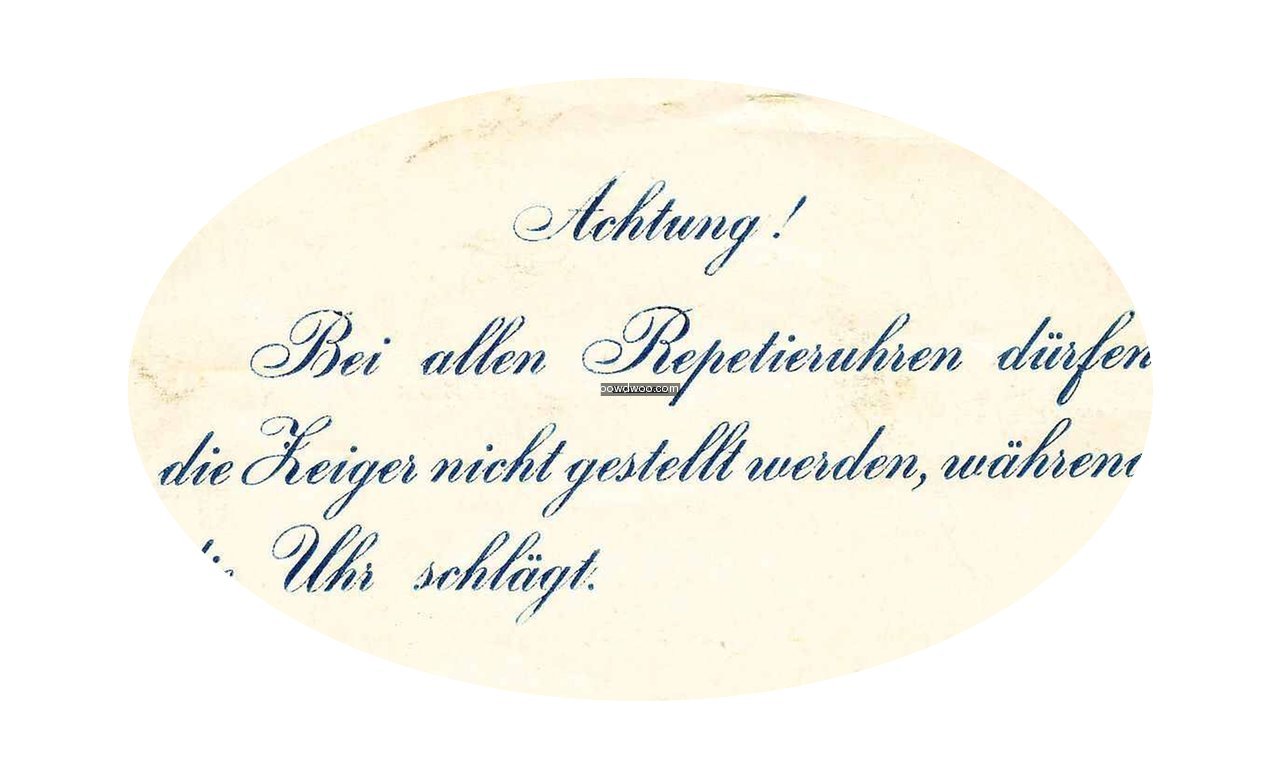 Achtung!
Bei allen Repetieruhren dürfen
die Zeiger nicht gestellt werden, während
Uhr schlägt.
bowdwoo.com